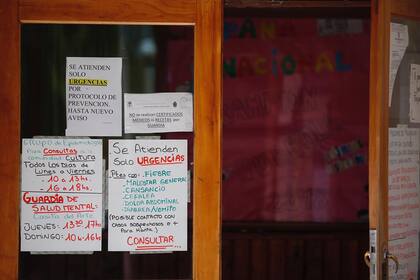 SE ATIENDEN
SOLO
URGENCIAS
POR
PROTOCOLO DE
PREVENCION.
HASTA NUEVO
AVISO
NO se realizan CERTIFICADOS
MEDICOS ni RECETAS por
GUARDIA
Grupo de Epidemiología
Para Consultas de la
comunidad Cultura
Todos Los Días de
Lunes a Viernes
- 10 a 13hs
- 16 a 18hs
GUARDIA DE
SALUD MENTAL:
Casita del Arte
JUEVES: 13 30 17h
DOMINGO: 10 a 16hs
Se Atienden
Solo URGENCIAS
Ptes con: - FIEBRE
- MALESTAR GENERAL
- CANSANCIO
- CEFALEA
- DOLOR ABDOMINAL
(POSIBLE CONTACTO CON
CASOS SOSPECHOSOS
CONSULTAR
nacional